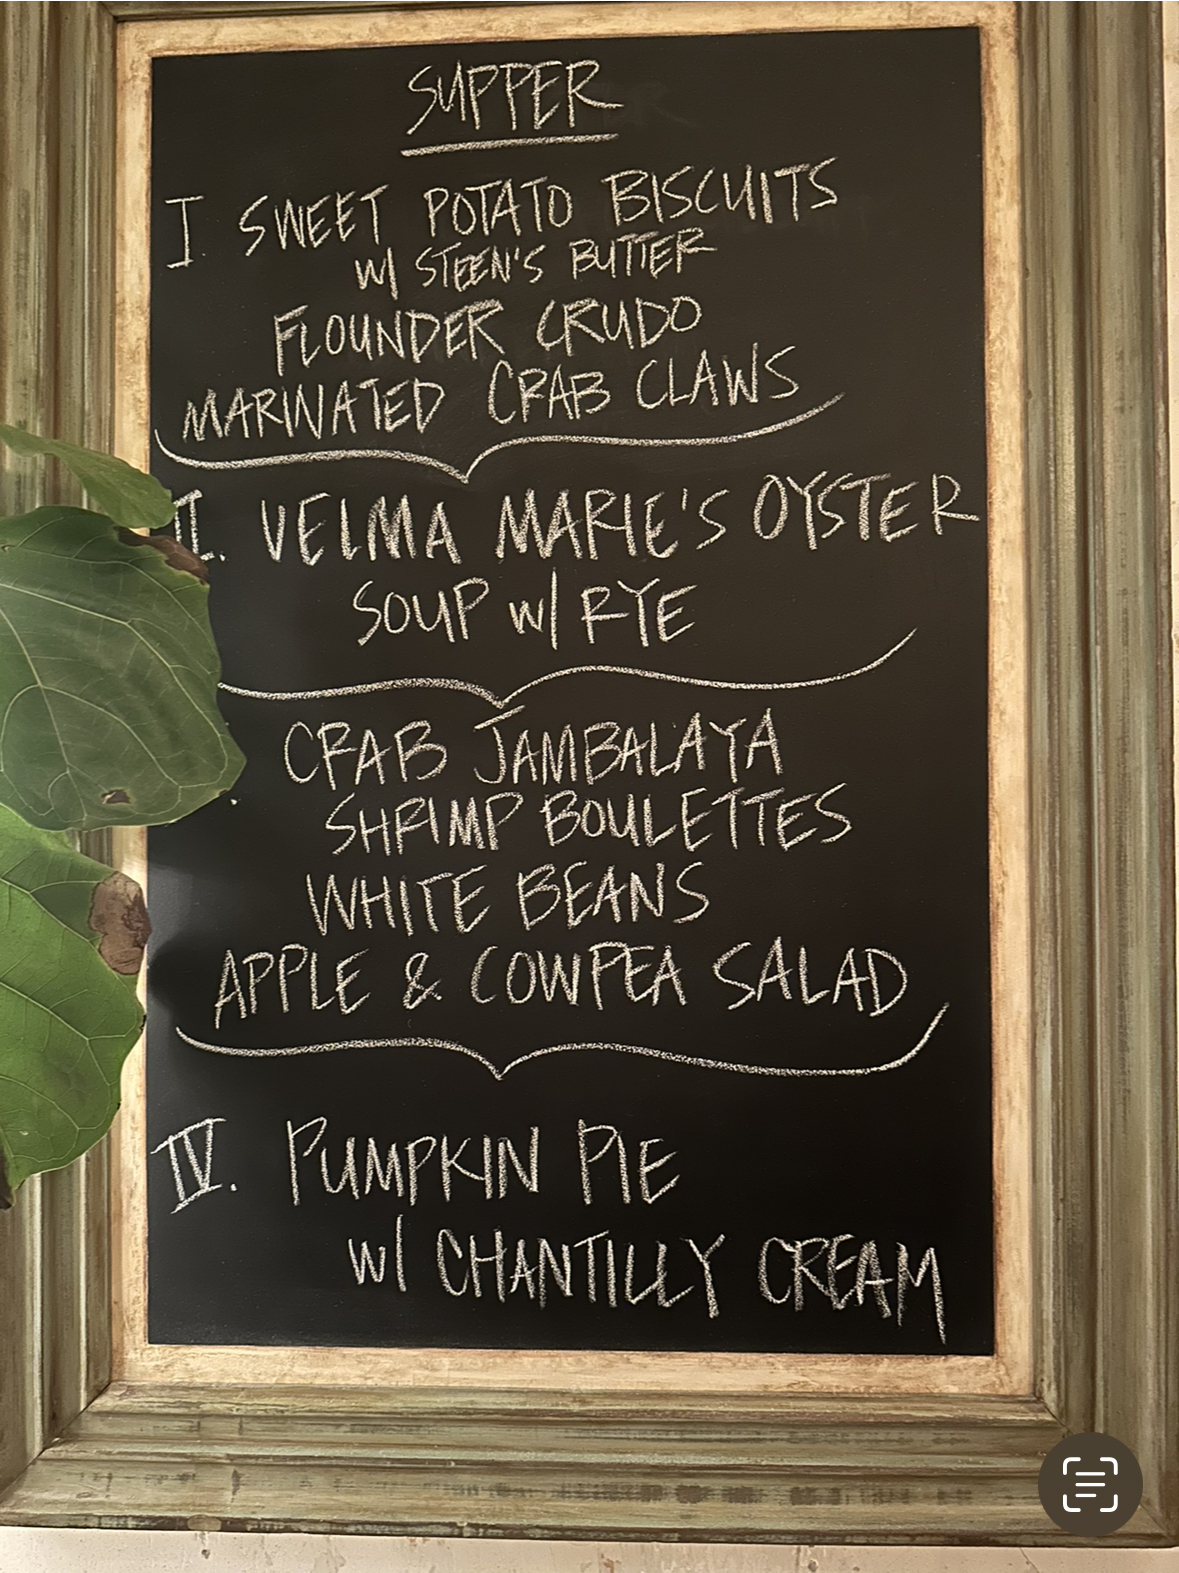 SUPPER
I. SWEET POTATO BISCUITS
w/ STEEN'S BUTTER
FLOUNDER CRUDO
MARINATED CRAB CLAWS
II. VELMA MARIE'S OYSTER
SOUP w/ RYE
CRAB JAMBALAYA
SHRIMP BOULETTES
WHITE BEANS
APPLE & COWPEA SALAD
IV. PUMPKIN PIE
w/ CHANTILLY CREAM